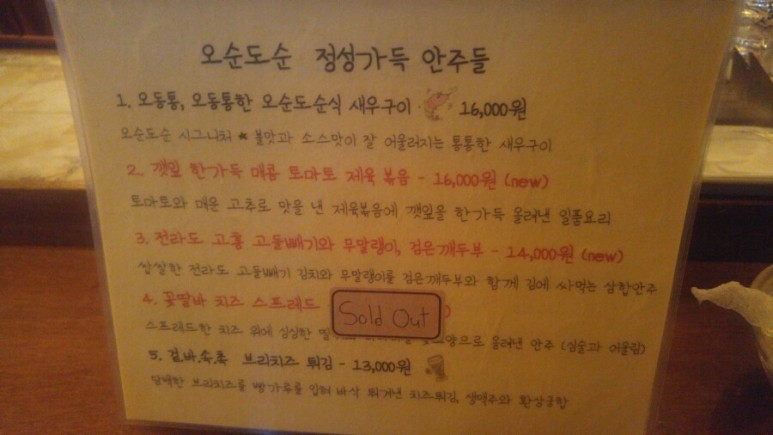 오순도순 정성가득 안주들
1. 오동통, 오동통한 오순도순식 새우구이 16,000원
오순도순 시그니처 * 불맛과 소스맛이 잘 어울러지는 통통한 새우구이
2. 깻잎 한가득 매콤 토마토 제육 볶음 - 16,000원 (new)
토마토와 매운 고추로 맛을 낸 제육볶음에 깻잎을 한가득 올려낸 일품요리
3. 전라도 고흥 고들빼기와 무말랭이, 검은깨두부 - 14,000원 (new)
쌉쌀한 전라도 고들빼기 김치와 무말랭이를 검은깨두부와 함께 김에 싸먹는 삼합안주
4. 꽃딸바 치즈 스프레드
Sold Out
스프레드한 치즈 위에 싱싱한 으로 올려낸 안주
5. 겉.바.속.촉 브리치즈 튀김 - 13,000원
담백한 브리치즈를 빵가루를 입혀 바삭 튀겨낸 치즈튀김, 생맥주와 환상궁합